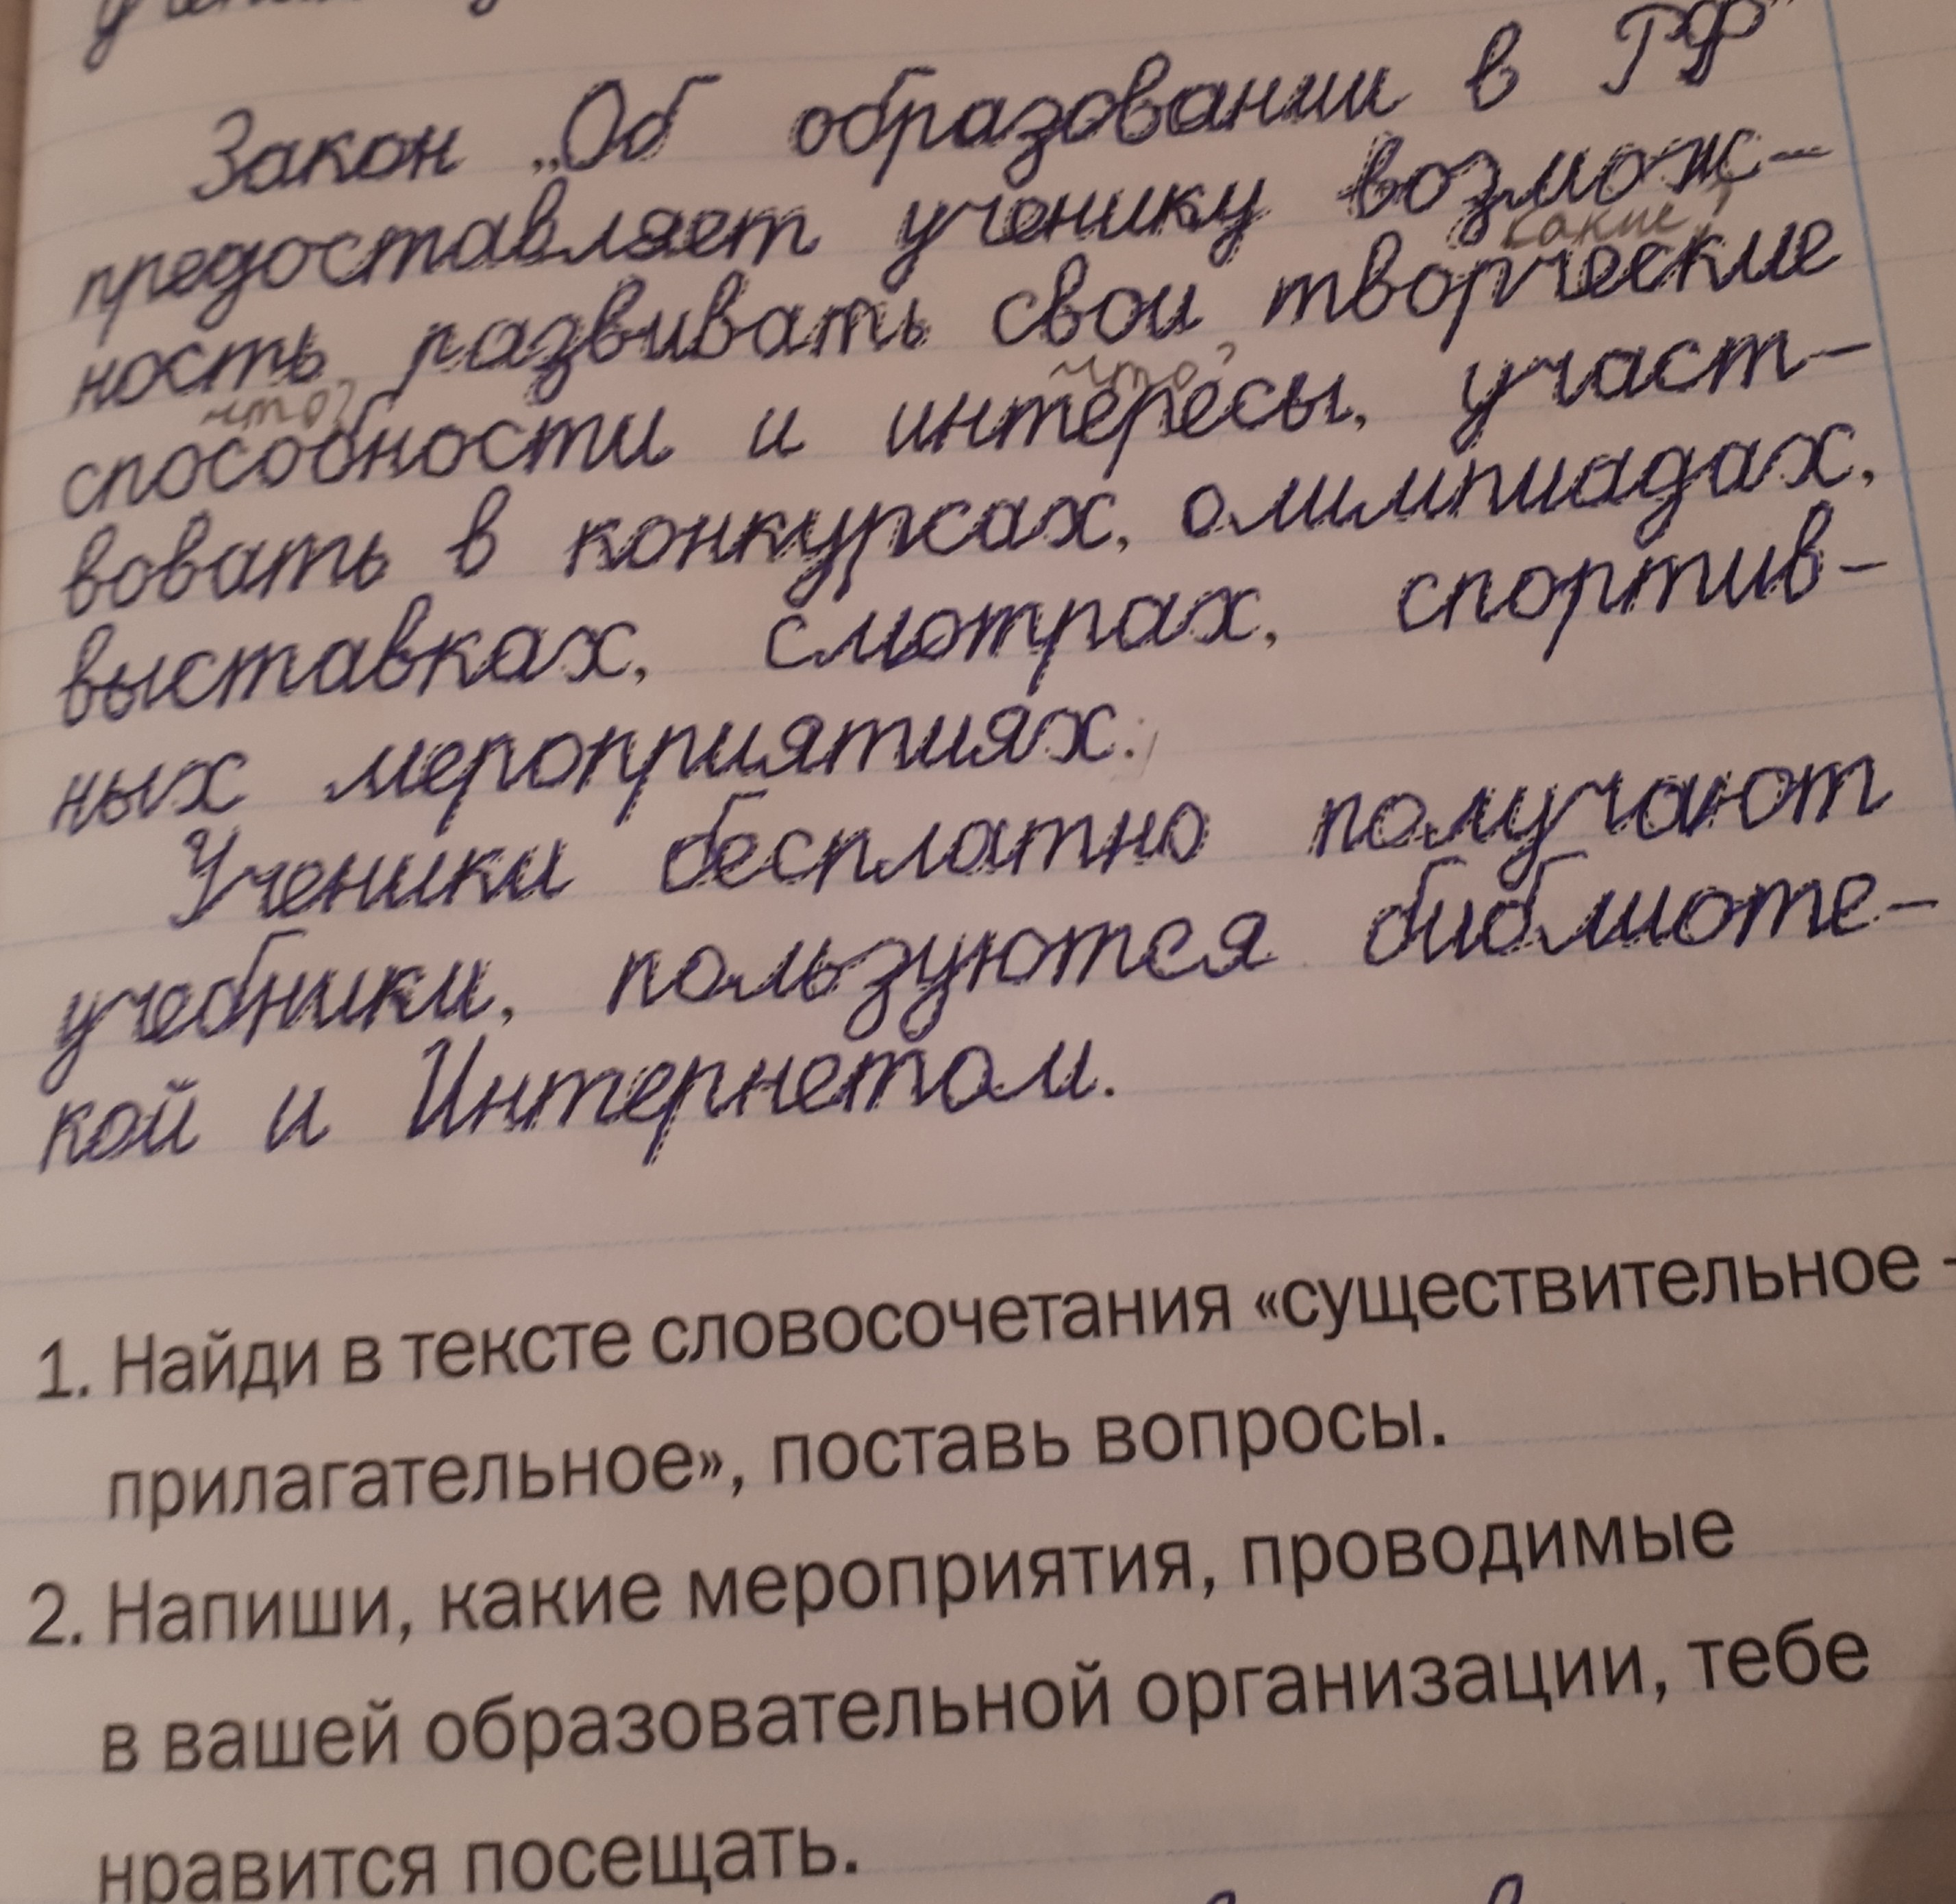 Закон „Об образовании в РФ"
предоставляет ученику возмож-
какие?
ность развивать свои творческие
что? что?
способности и интересы, участ-
вовать в конкурсах, олимпиадах,
выставках, смотрах, спортив-
ных мероприятиях.
Ученики бесплатно получают
учебники, пользуются библиоте-
кой и Интернетом.
1. Найди в тексте словосочетания «существительное -
прилагательное», поставь вопросы.
2. Напиши, какие мероприятия, проводимые
в вашей образовательной организации, тебе
нравится посещать.